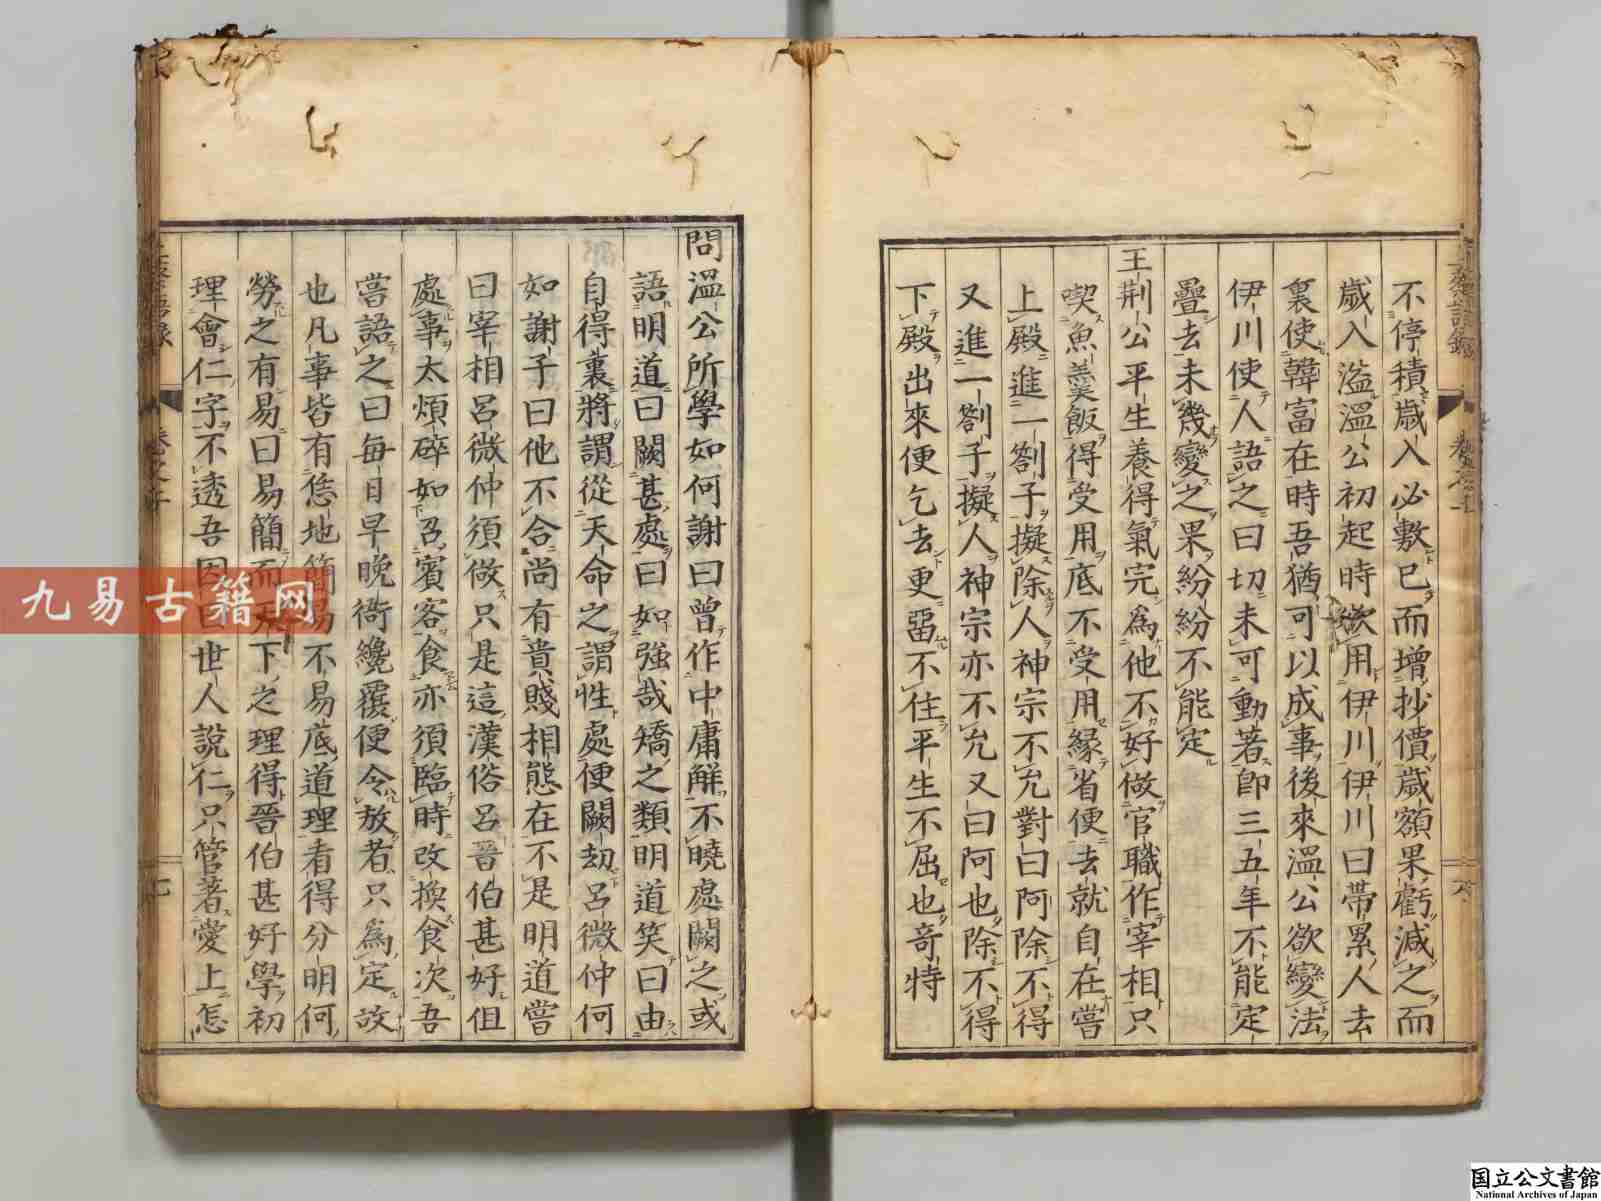 不停積歲入必敷已而增抄價歲額果虧減之而
歲入溢溫公初起時欲用伊川伊川曰帶累人去
裏使韓富在時吾猶可以成事後來溫公欲變法
伊川使人語之曰切未可動著即三五年不能定
疊去未幾變之果紛紛不能定
王荊公平生養得氣完為他不好做官職作宰相只
喫魚羹飯得受用底不受用緣省便去就自在嘗
上殿進一劄子擬除人神宗不允對曰阿除不得
又進一劄子擬人神宗亦不允又曰阿也除不得
下殿出來便乞去更畱不住平生不屈也奇特
問溫公所學如何謝曰曾作中庸解不曉處闕之或
語明道曰闕甚處曰如強哉矯之類明道笑曰由
自得裏將謂從天命之謂性處便闕却呂微仲何
如謝子曰他不合尚有貴賤相態在不是明道嘗
曰宰相呂微仲須做只是這漢俗呂晉伯甚好但
處事太煩碎如召賓客食亦須臨時改換食次吾
嘗語之曰每日早晚衙纔覆便令放者只為定故
也凡事皆有恁地簡易不易底道理看得分明何
勞之有易曰易簡而天下之理得晉伯甚好學初
理會仁字不透吾因曰世人說仁只管著愛上怎
上蔡語錄
卷之上
六
七
九易古籍网
国立公文書館
National Archives of Japan